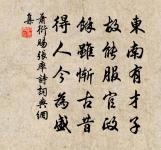 東南有才子
故能服官政
餘雖慚古昔
得人今為盛
蕭衍賜張率詩詞典網
集